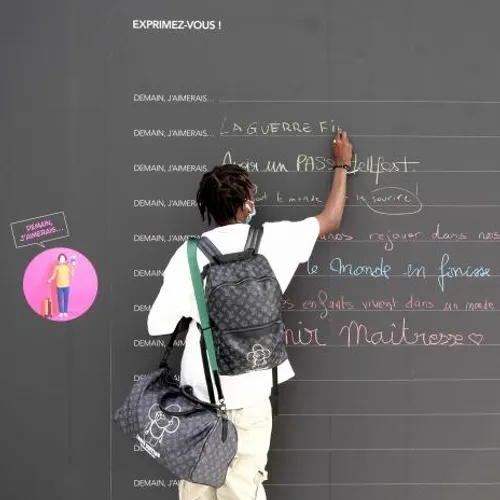 EXPRIMEZ-VOUS !
DEMAIN, J'AIMERAIS...
DEMAIN, J'AIMERAIS... LA GUERRE Fi
DEMAIN, J'AIMERAIS... Avoir un PASS Hellfest.
DEMAIN, J'AIMERAIS... le monde sourire
DEMAIN, J'AIMERAIS rejouer dans nos
DEMAIN, J'AIM le Monde en finisse
DEMAIN, enfants vivent dans un monde
DEMAIN, J'AIM nir Maîtresse♡
DEMAIN,
DEMAIN,
DEMAIN, J'AI
DEMAIN, J'AIMERAIS...